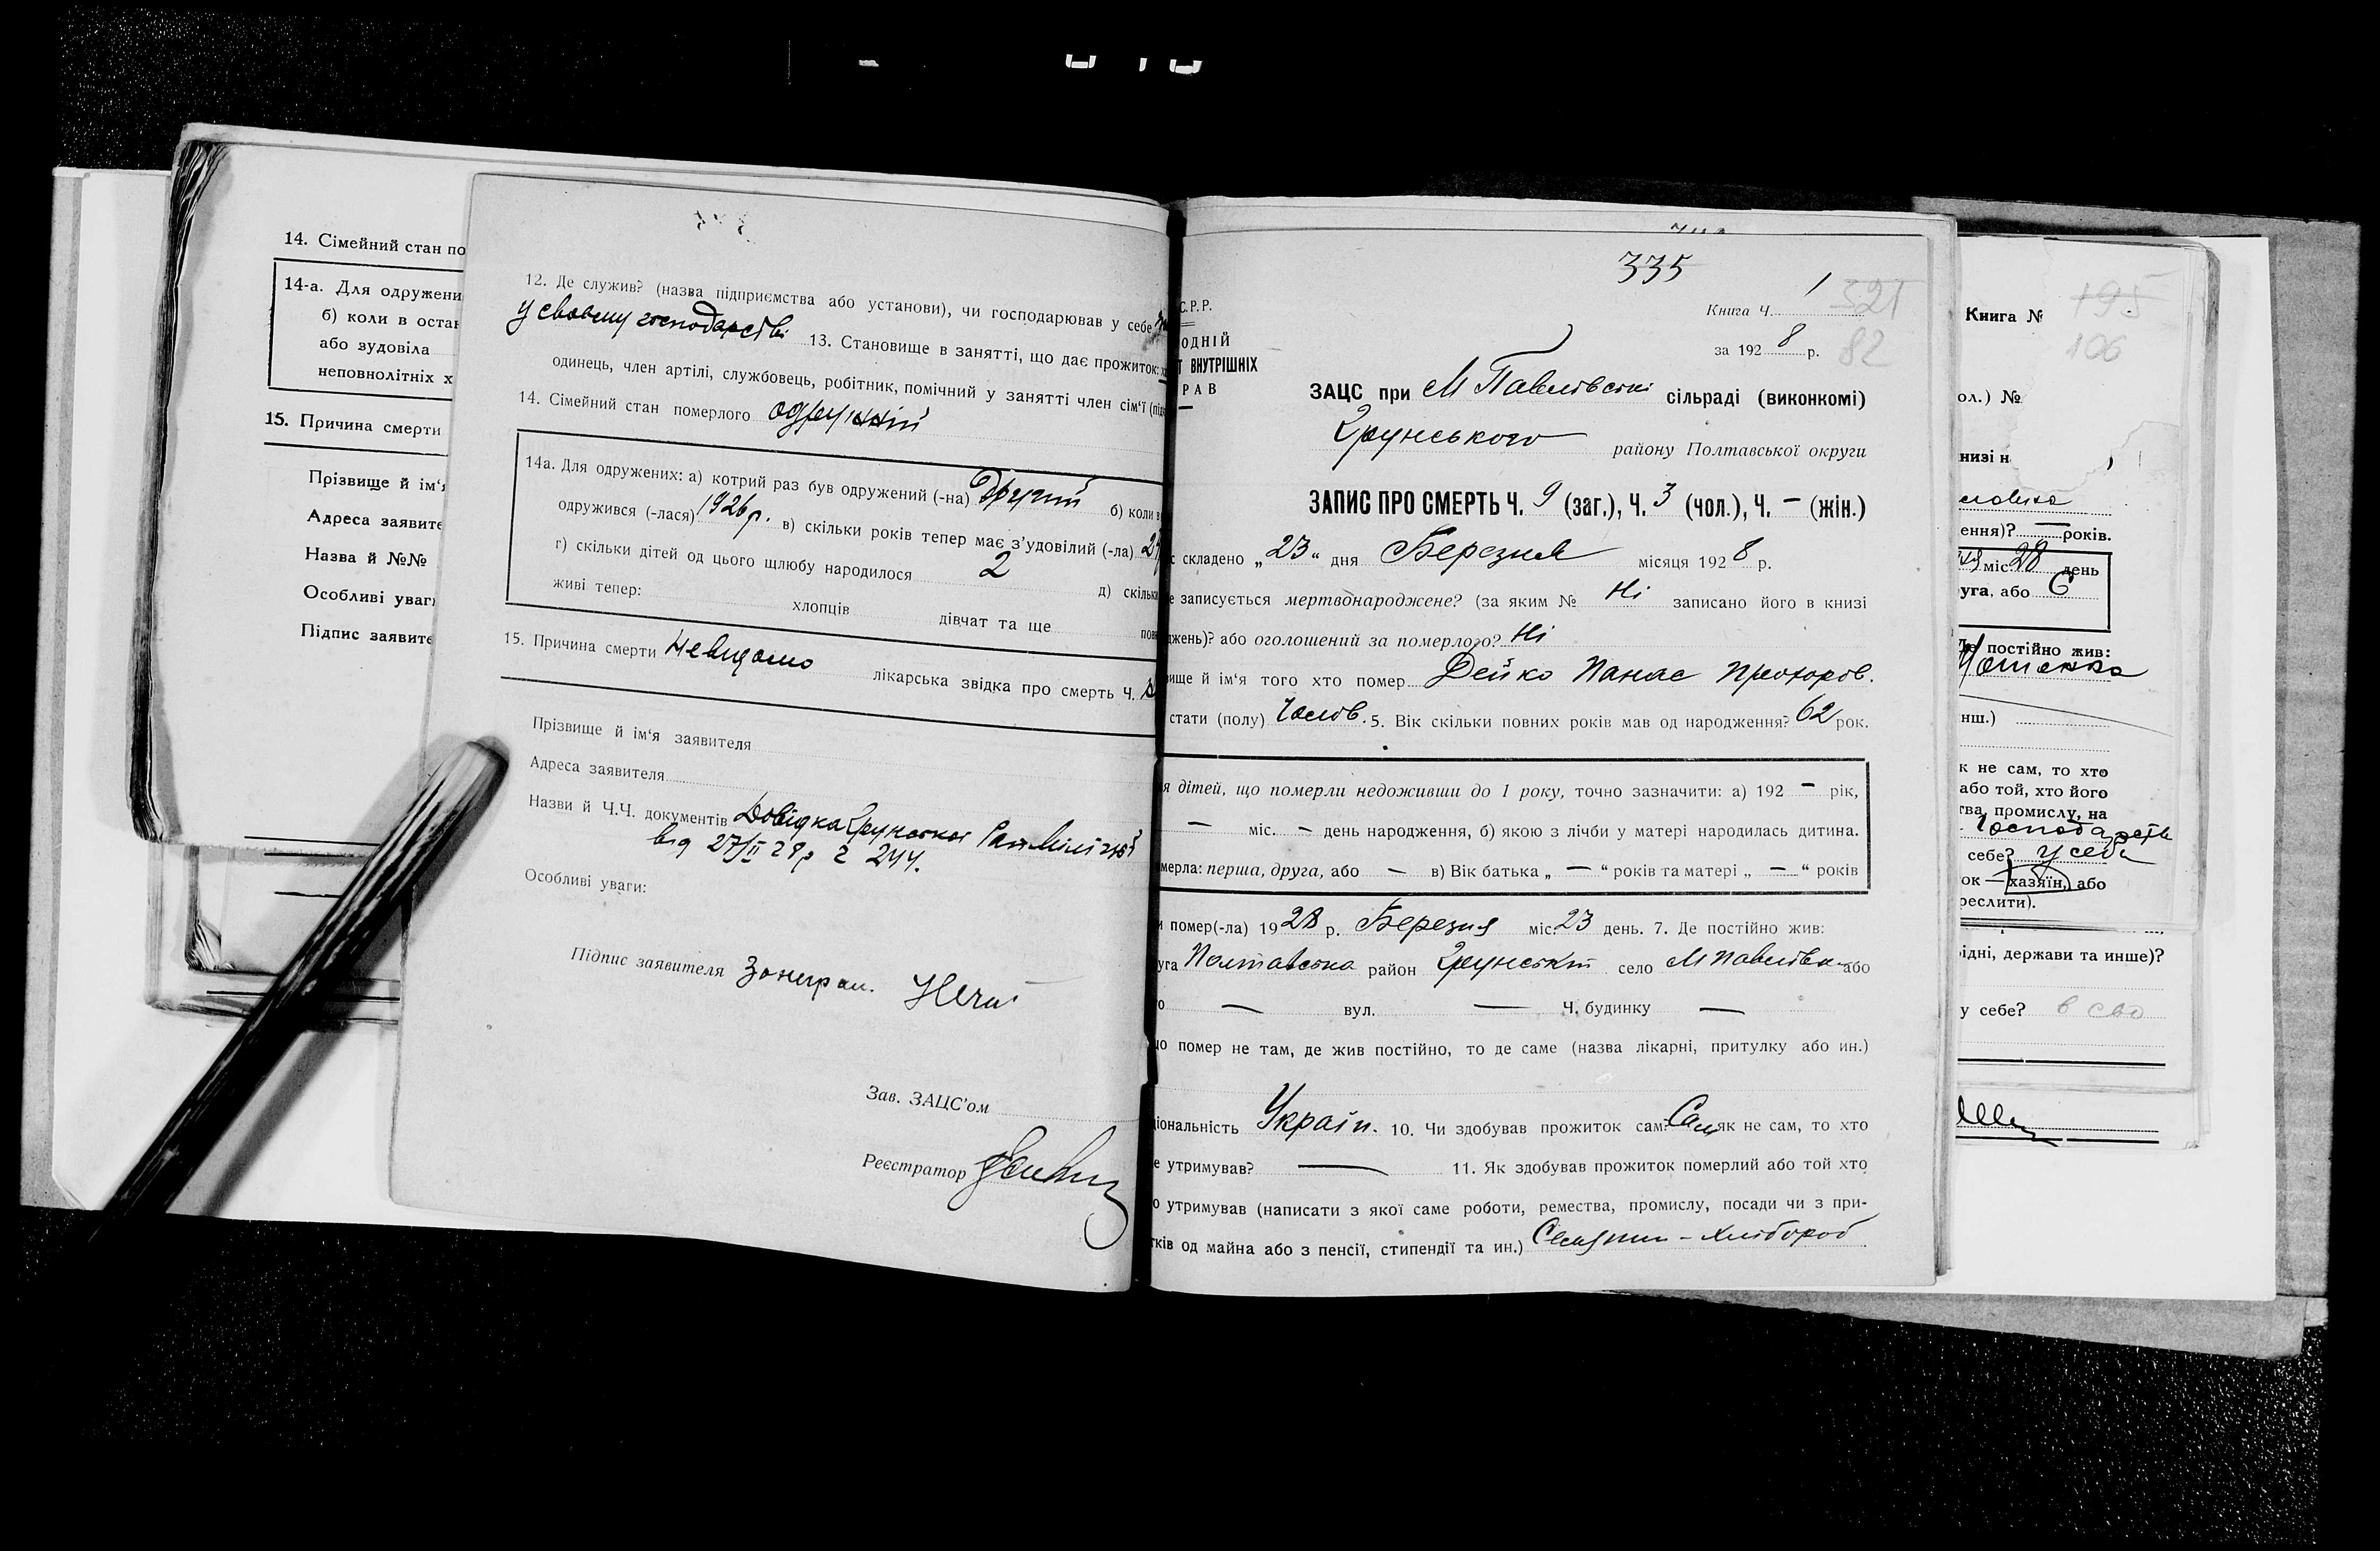 14. Сімейний стан по
14-а. Для одружени
б) коли в остан
або зудовіла
неповнолітніх х
15. Причина смерти
Прізвище й ім'я
Адреса заявите
Назва й №№
Особливі уваги
Підпис заявите
12. Де служив? (назва підприємства або установи), чи господарював у себе
у своєму господарстві 13. Становище в занятті, що дає прожиток:
одинець, член артілі, службовець, робітник, помічний у занятті член сім'ї
14. Сімейний стан померлого одружній
14а. Для одружених: а) котрий раз був одружений (-на) Другий б) коли в
одружився (-лася) 1926 р. в) скільки років тепер має з'удовілий (-ла)
г) скільки дітей од цього шлюбу народилося 2 д) скільки
живі тепер: хлопців дівчат та ще пов
15. Причина смерти невидомо лікарська звідка про смерть Ч.
Прізвище й ім'я заявителя
Адреса заявителя
Назви й Ч.Ч. документів Довідка Грунської РайМіліції
від 27/II 28 р 244.
Особливі уваги:
Підпис заявителя
Зав. ЗАЦС'ом
Реєстратор
335
С.Р.Р.
Книга Ч. 1 321
ОДНІЙ
за 1928 р. 82
Т ВНУТРІШНІХ
РАВ
ЗАЦС при М Павлівські сільраді (виконкомі)
Грунського району Полтавської округи
ЗАПИС ПРО СМЕРТЬ Ч. 9 (заг.), Ч. 3 (чол.), Ч. — (жін.)
с складено „23“ дня Березня місяця 1928 р.
е записується мертвонароджене? (за яким № Ні записано його в книзі
джень)? або оголошений за померлого? Ні
вище й ім'я того хто помер Дейко Панас Прохоров.
стати (полу) Чолов. 5. Вік скільки повних років мав од народження? 62 рок.
я дітей, що померли недоживши до 1 року, точно зазначити: а) 192 — рік,
— міс. — день народження, б) якою з лічби у матері народилась дитина.
мерла: перша, друга, або — в) Вік батька „ — “ років та матері „ — “ років
и помер(-ла) 1928 р. Березня міс. 23 день. 7. Де постійно жив:
уга Полтавська район Грунський село М Павлівка або
о — вул. — Ч. будинку —
що помер не там, де жив постійно, то де саме (назва лікарні, притулку або ин.)
іональність Україн. 10. Чи здобував прожиток сам? Сам як не сам, то хто
е утримував? — 11. Як здобував прожиток померлий або той хто
о утримував (написати з якої саме роботи, ремества, промислу, посади чи з при-
тків од майна або з пенсії, стипендії та ин.) Селянин - хлібороб
Книга № 195
106
ол.) №
книзі н
ення)? — років.
міс. 28 день
руга, або 6
Де постійно жив:
нш.)
к не сам, то хто
або той, хто його
тва, промислу, на
Господарств
себе? у себе
ок — хазяїн, або
реслити).
ідні, держави та инше)?
у себе? в сво